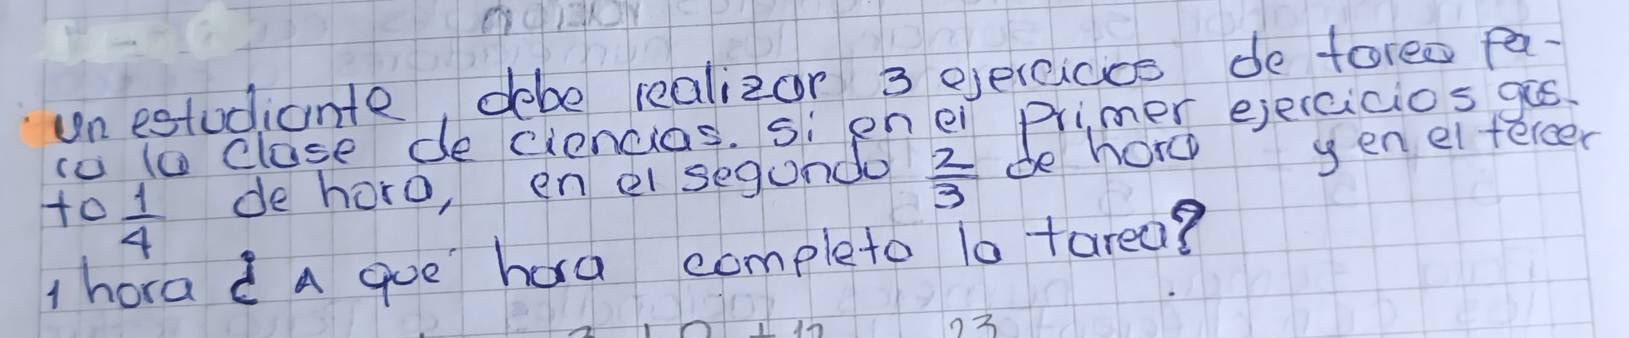 un estudiante, debe realizar 3 ejercicios de tarea pa-
ra la clase de ciencias. Si en el primer ejercicios gas-
to 1/4 de hora, en el segundo 2/3 de hora y en el tercer
1 hora ¿ A que hora completo la tarea?
23